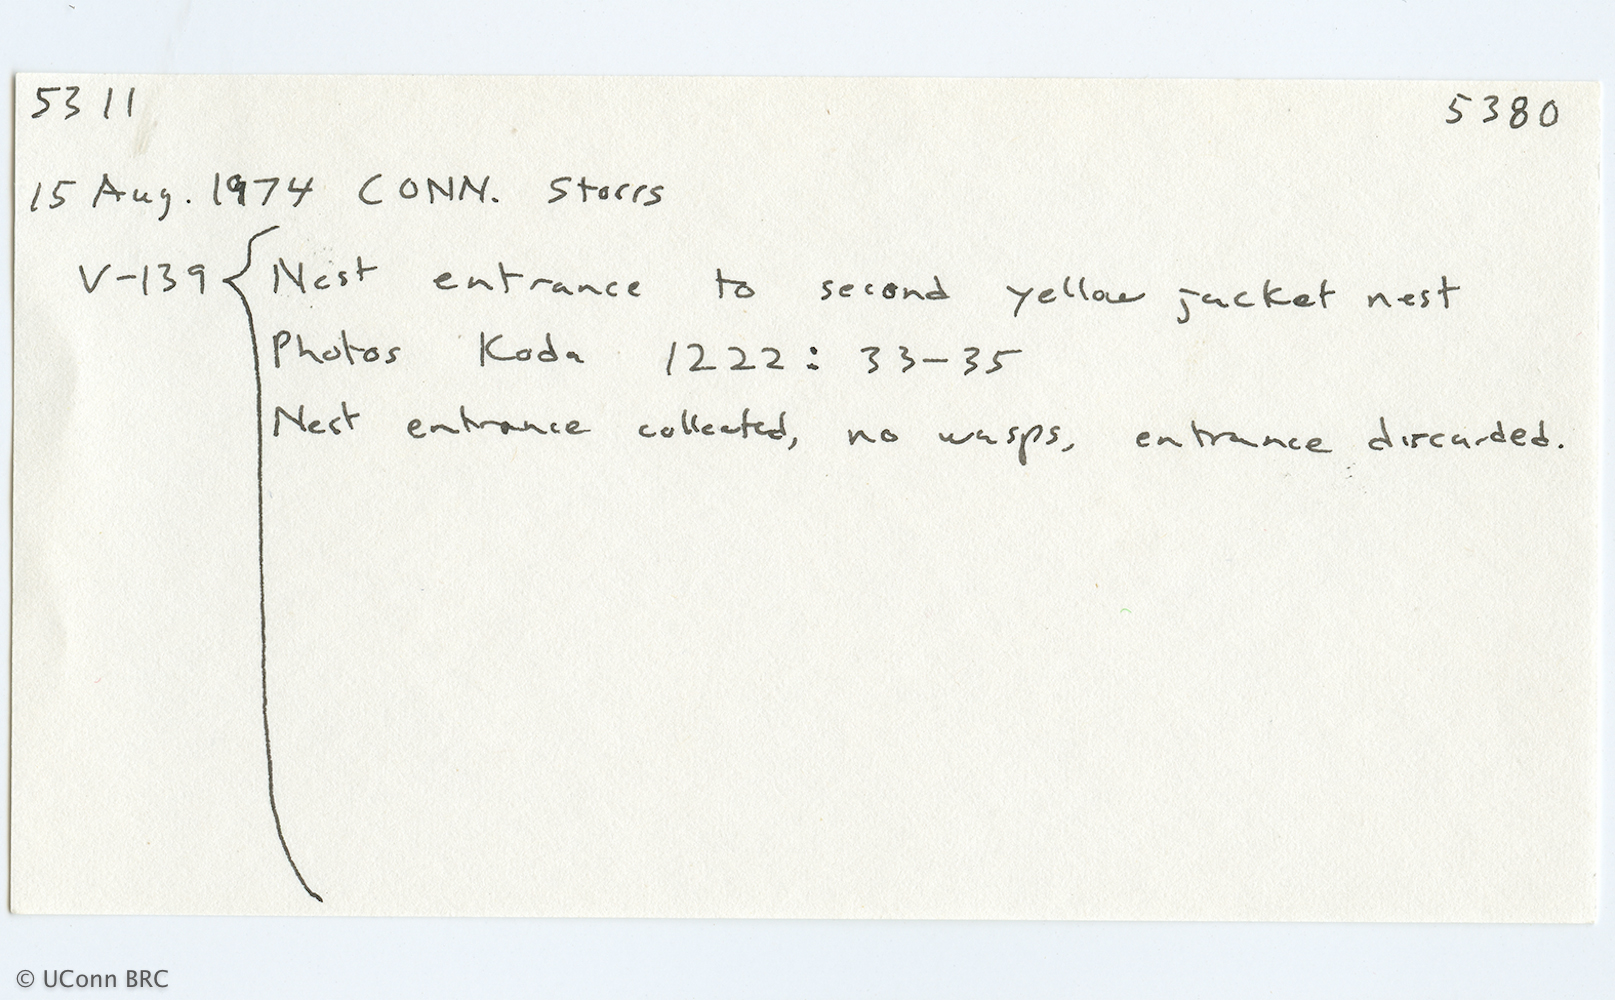 5311 5380
15 Aug. 1974 CONN. Storrs
V-139 { Nest entrance to second yellow jacket nest
Photos Koda 1222: 33-35
Nest entrance collected, no wasps, entrance discarded.
© UConn BRC